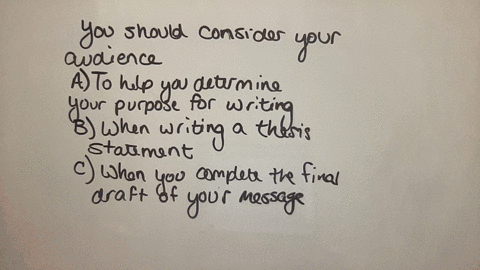 You should consider your
audience
A) To help you determine
your purpose for writing
B) When writing a thesis
statement
C) When you complete the final
draft of your message